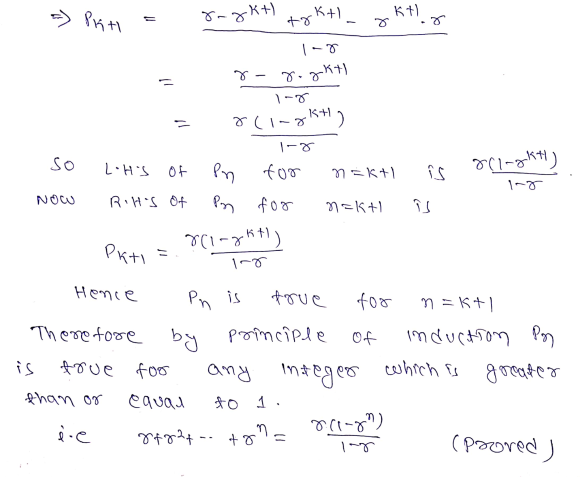 ⇒ P_{K+1} = (r - r^{K+1} + r^{K+1} - r^{K+1}.r) / (1-r)
= (r - r.r^{K+1}) / (1-r)
= r(1-r^{K+1}) / (1-r)
SO L.H.S of Pn for n=K+1 is r(1-r^{K+1}) / (1-r).
NOW R.H.S of Pn for n=K+1 is
P_{K+1} = r(1-r^{K+1}) / (1-r)
Hence Pn is true for n=K+1
Therefore by principle of induction Pn
is true for any integer which is greater
than or equal to 1.
i.e r+r^2+-- +r^n = r(1-r^n) / (1-r) (proved)